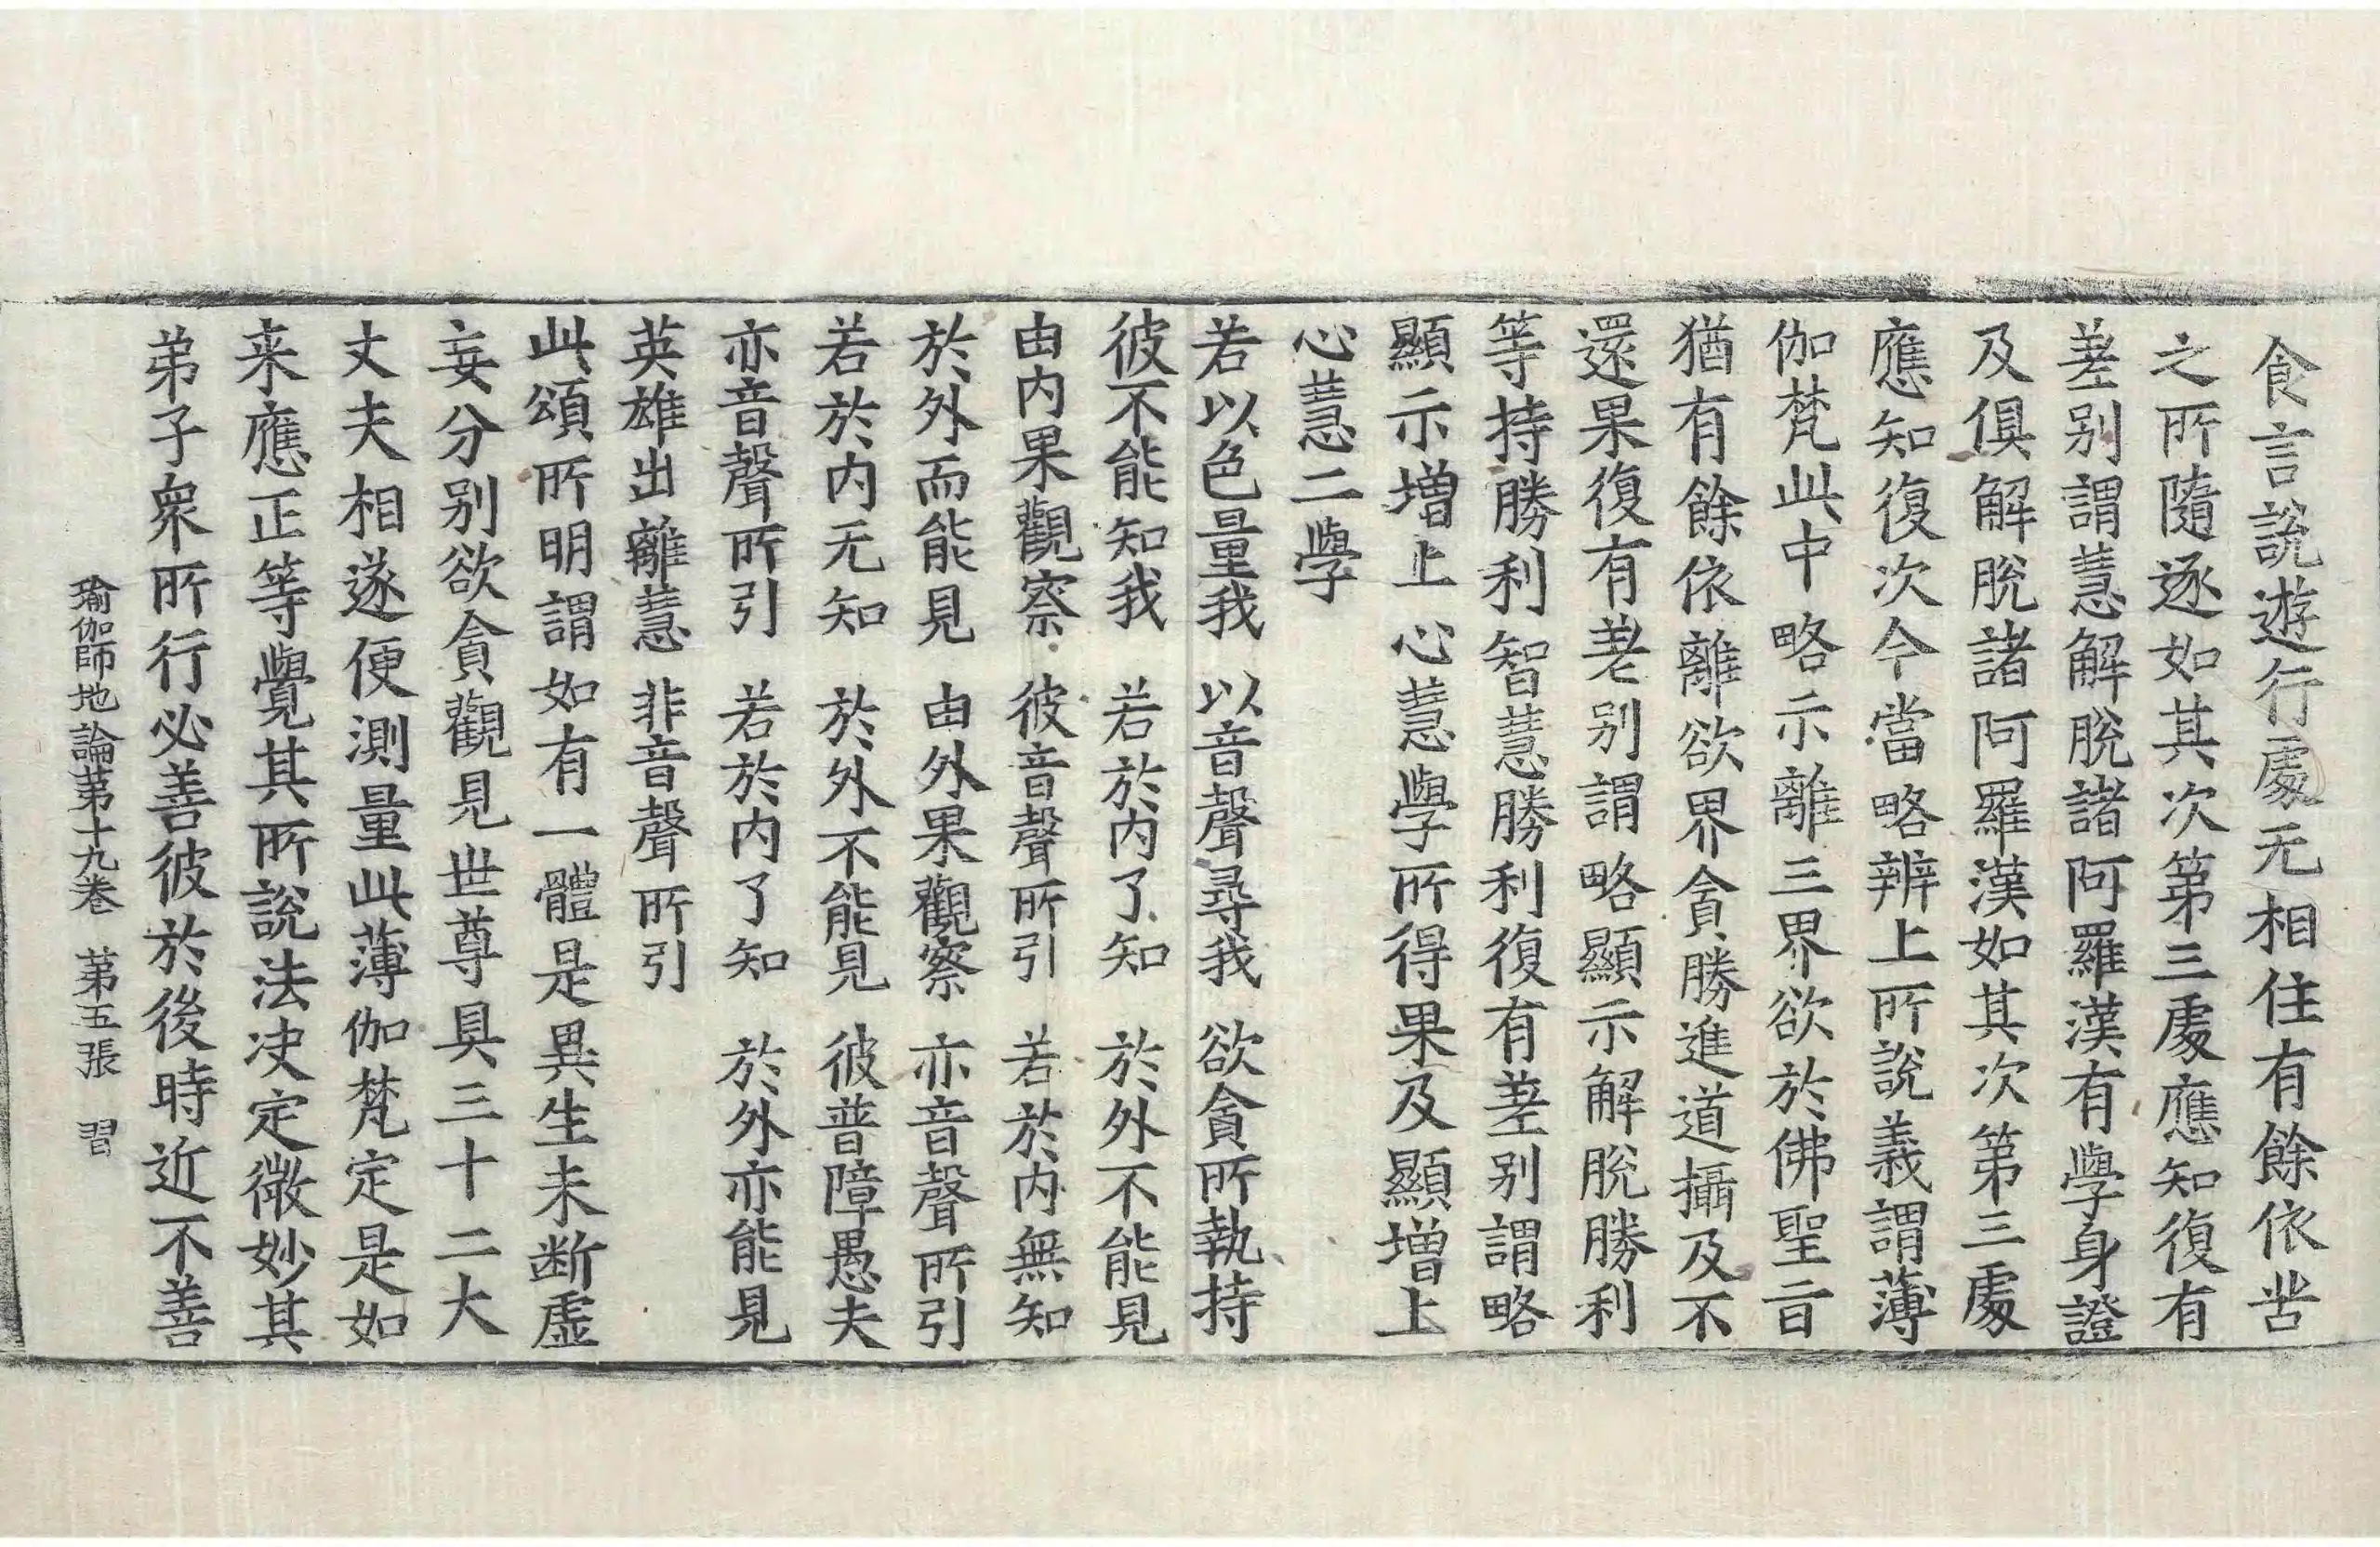 食言說遊行處无相住有餘依苦
之所隨逐如其次第三處應知復有
差別謂慧解脫諸阿羅漢有學身證
及俱解脫諸阿羅漢如其次第三處
應知復次今當略辨上所說義謂薄
伽梵此中略示離三界欲於佛聖旨
猶有餘依離欲界貪勝進道攝及不
還果復有差別謂略顯示解脫勝利
等持勝利智慧勝利復有差別謂略
顯示增上心慧學所得果及顯增上
心慧二學
若以色量我　以音聲尋我　欲貪所執持
彼不能知我　若於内了知　於外不能見
由内果觀察　彼音聲所引　若於内無知
於外而能見　由外果觀察　亦音聲所引
若於内无知　於外不能見　彼普障愚夫
亦音聲所引　若於内了知　於外亦能見
英雄出離慧　非音聲所引
此頌所明謂如有一體是異生未断虛
妄分別欲貪觀見世尊具三十二大
丈夫相遂便測量此薄伽梵定是如
来應正等覺其所說法决定微妙其
弟子衆所行必善彼於後時近不善
瑜伽師地論第十九卷　第五張　習